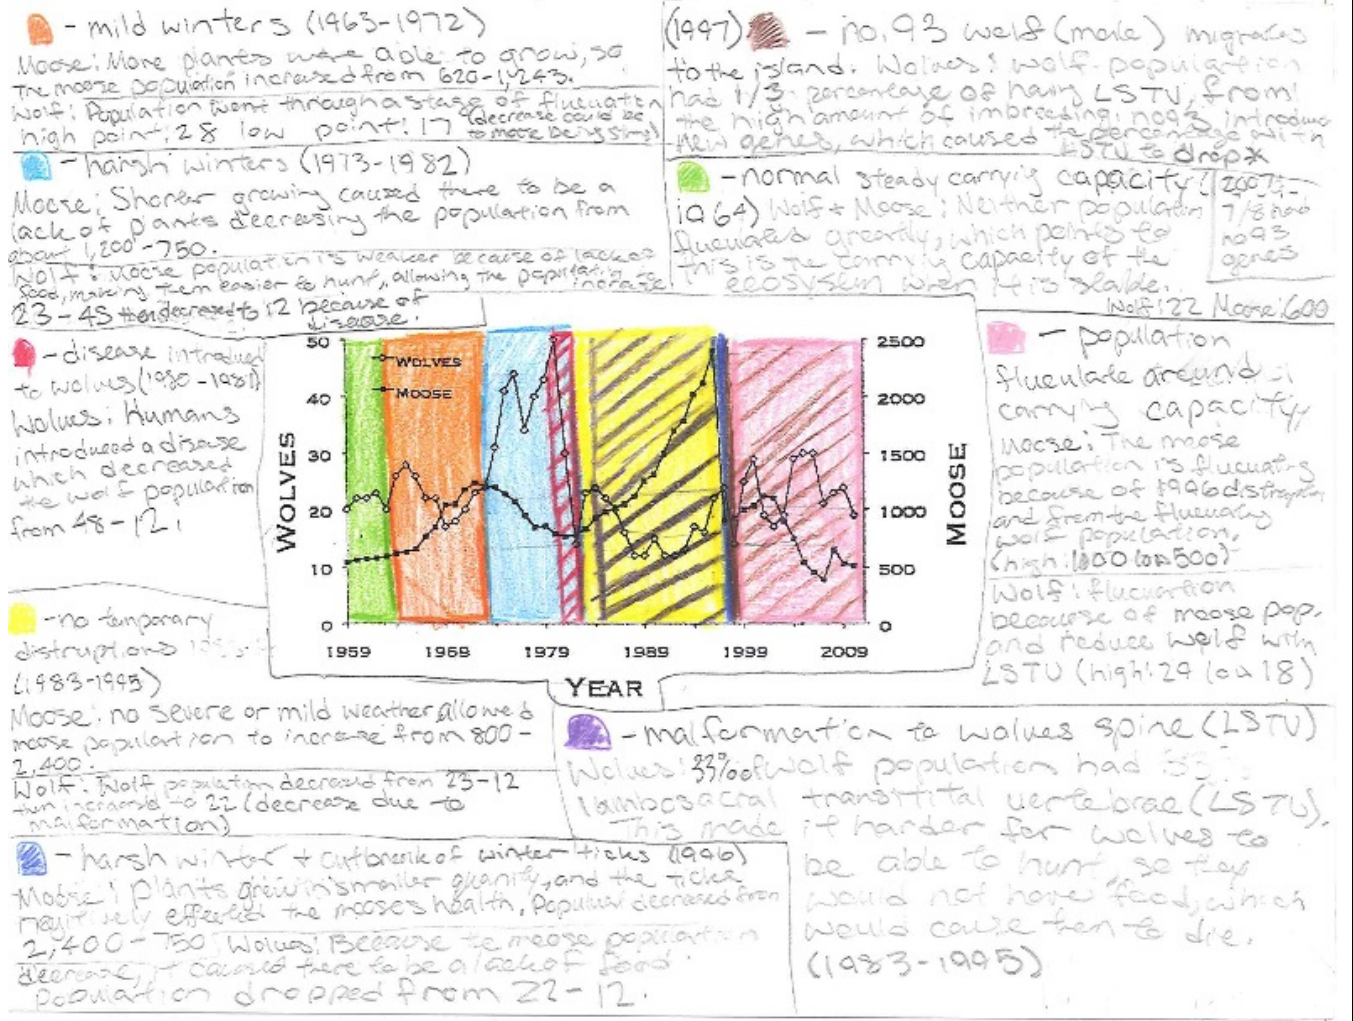 - mild winters (1963-1972)
Moose: More plants were able to grow, so
the moose population increased from 620-1,243.
Wolf: Population went through a stage of flucuation
high point: 28 low point: 17 (decrease could be
to moose being strong)
- harsh winters (1973-1982)
Moose: Shorter growing caused there to be a
lack of plants decreasing the population from
about 1,200-750.
Wolf: Moose population is weaker because of lack of
food, making them easier to hunt, allowing the population to increase
23-45 then decreased to 12 because of
disease.
- disease introduced
to wolves (1980-1981)
Wolves: Humans
introduced a disease
which decreased
the wolf population
from 48-12.
- no temporary
distruptions
(1983-1995)
Moose: no severe or mild weather allowed
moose population to increase from 800-
2,400.
Wolf: Wolf population decreased from 23-12
then increased to 22 (decrease due to
malformation)
- harsh winter + outbreak of winter ticks (1996)
Moose: plants grew in smaller quanity, and the ticks
negitively effected the mooses health. decreased from
2,400-750 Wolves: Because te moose population
decrease, it caused there to be a lack of food.
Population dropped from 22-12.
(1997) - no.93 wolf (male) migrates
to the island. Wolves: wolf population
had 1/3 percentage of having LSTV, from
the high amount of imbreeding; no93
new genes, which caused the percentage with
LSTV to drop*
- normal steady carrying capacity (
1964) Wolf + Moose: Neither population
flucuated greatly, which points to
this is the carrying capacity of the
ecosystem when it is stable.
Wolf: 22 Moose: 600
7/8 had
no93
genes
- population
around
carrying capacity
Moose: The moose
population is flucuating
because of 1996
and from the flucuating
wolf population.
(high: low 500)
Wolf: flucuation
because of moose pop.
and reduce wolf with
LSTV (high: 29 low 18)
- malformation to wolves spine (LSTV)
Wolves: 33% of wolf population had
transitital vertebrae (LSTV).
This made it harder for wolves to
be able to hunt, so they
would not have food, which
would cause them to die.
(1983-1995)
WOLVES
MOOSE
50
40
30
20
10
0
2500
2000
1500
1000
500
0
WOLVES
MOOSE
1959
1969
1979
1989
1999
2009
YEAR